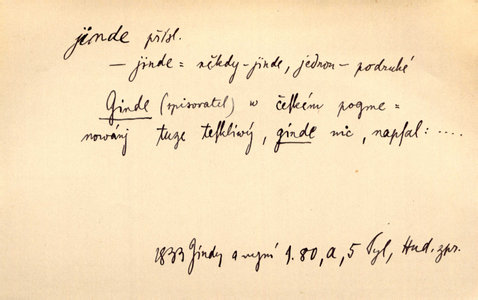 jinde přísl.
— jinde = někdy – jinde, jednou – podruhé
Ginde (spisovatel) w českém pogme=
nowánj tuze teskliwý, ginde nic, napsal: ....
1833 Gindy a nynj 1. 80, a, 5 Tyl, Hud. zpr.